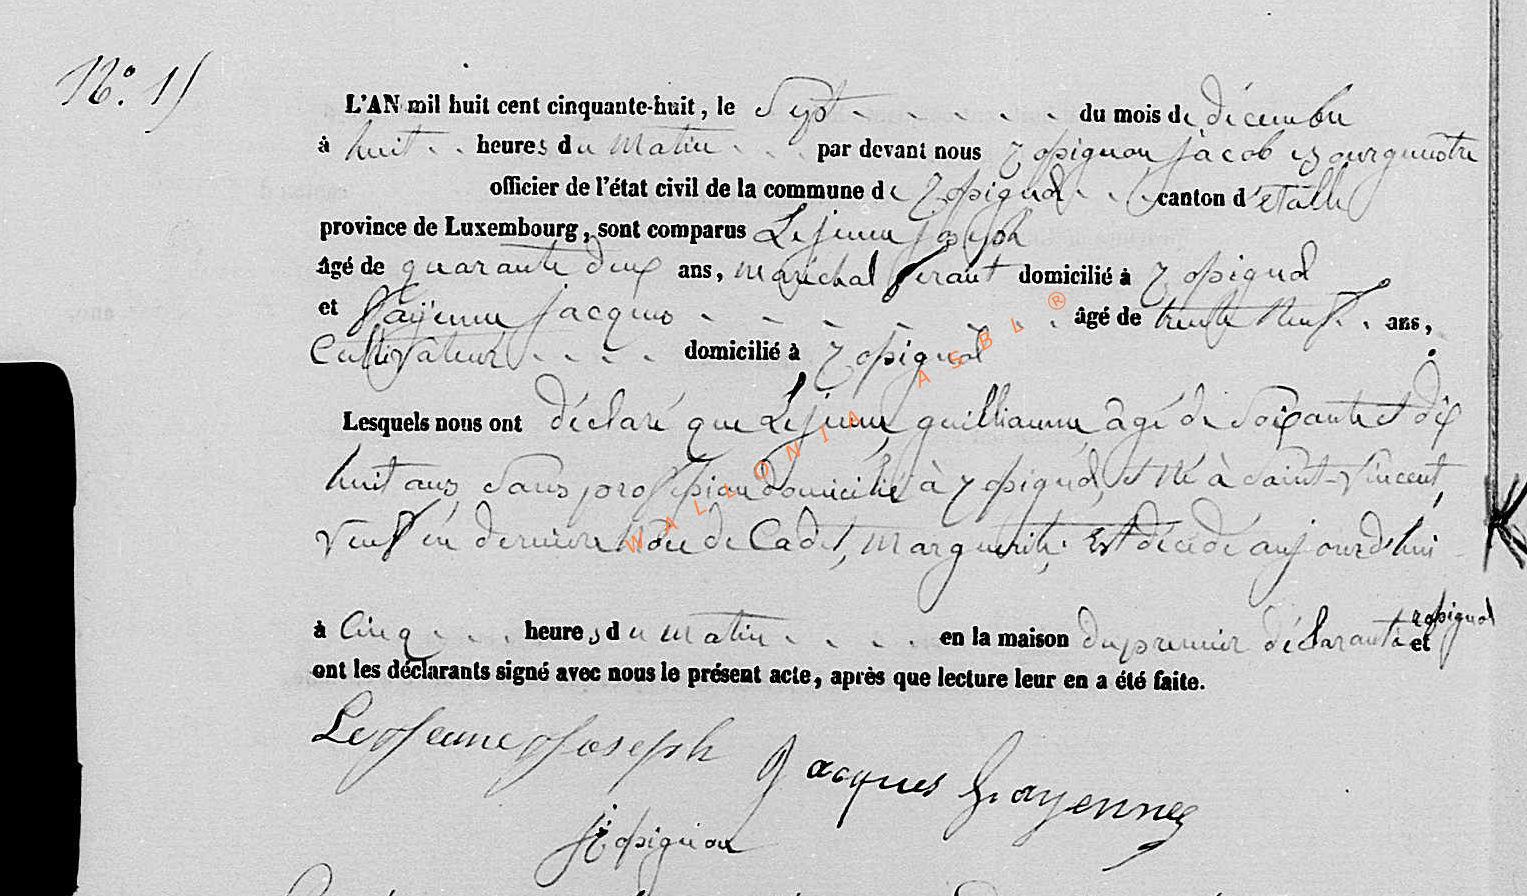 N°. 15
L'AN mil huit cent cinquante-huit, le Sept - - - - - du mois de décembre
à huit - - heures du Matin - - - par devant nous rossignon jacob Bourgmestre
officier de l'état civil de la commune de rossignol - - canton d'Etalle
province de Luxembourg, sont comparus Lejeune joseph
âgé de quarante deux ans, maréchal ferant domicilié à rossignol
et jacques - - - - - - - âgé de trente Neuf - ans,
Cultivateur - - - - domicilié à rossignol
Lesquels nous ont déclaré que Lejeune, guilliaume âgé de Soixante et dix
huit ans, Sans profession domicilié à rossignol, et Né à Saint-Vincent,
Veuf en dernière Noce de Cadet, Marguerite. Est décédé aujourd'hui
rossignol
à Cinq - - - heures du matin - - - - en la maison du premier déclarant à et
ont les déclarants signé avec nous le présent acte, après que lecture leur en a été faite.
LeJeune Joseph
Jacques
Rossignon
WALLONIA ASBL ®